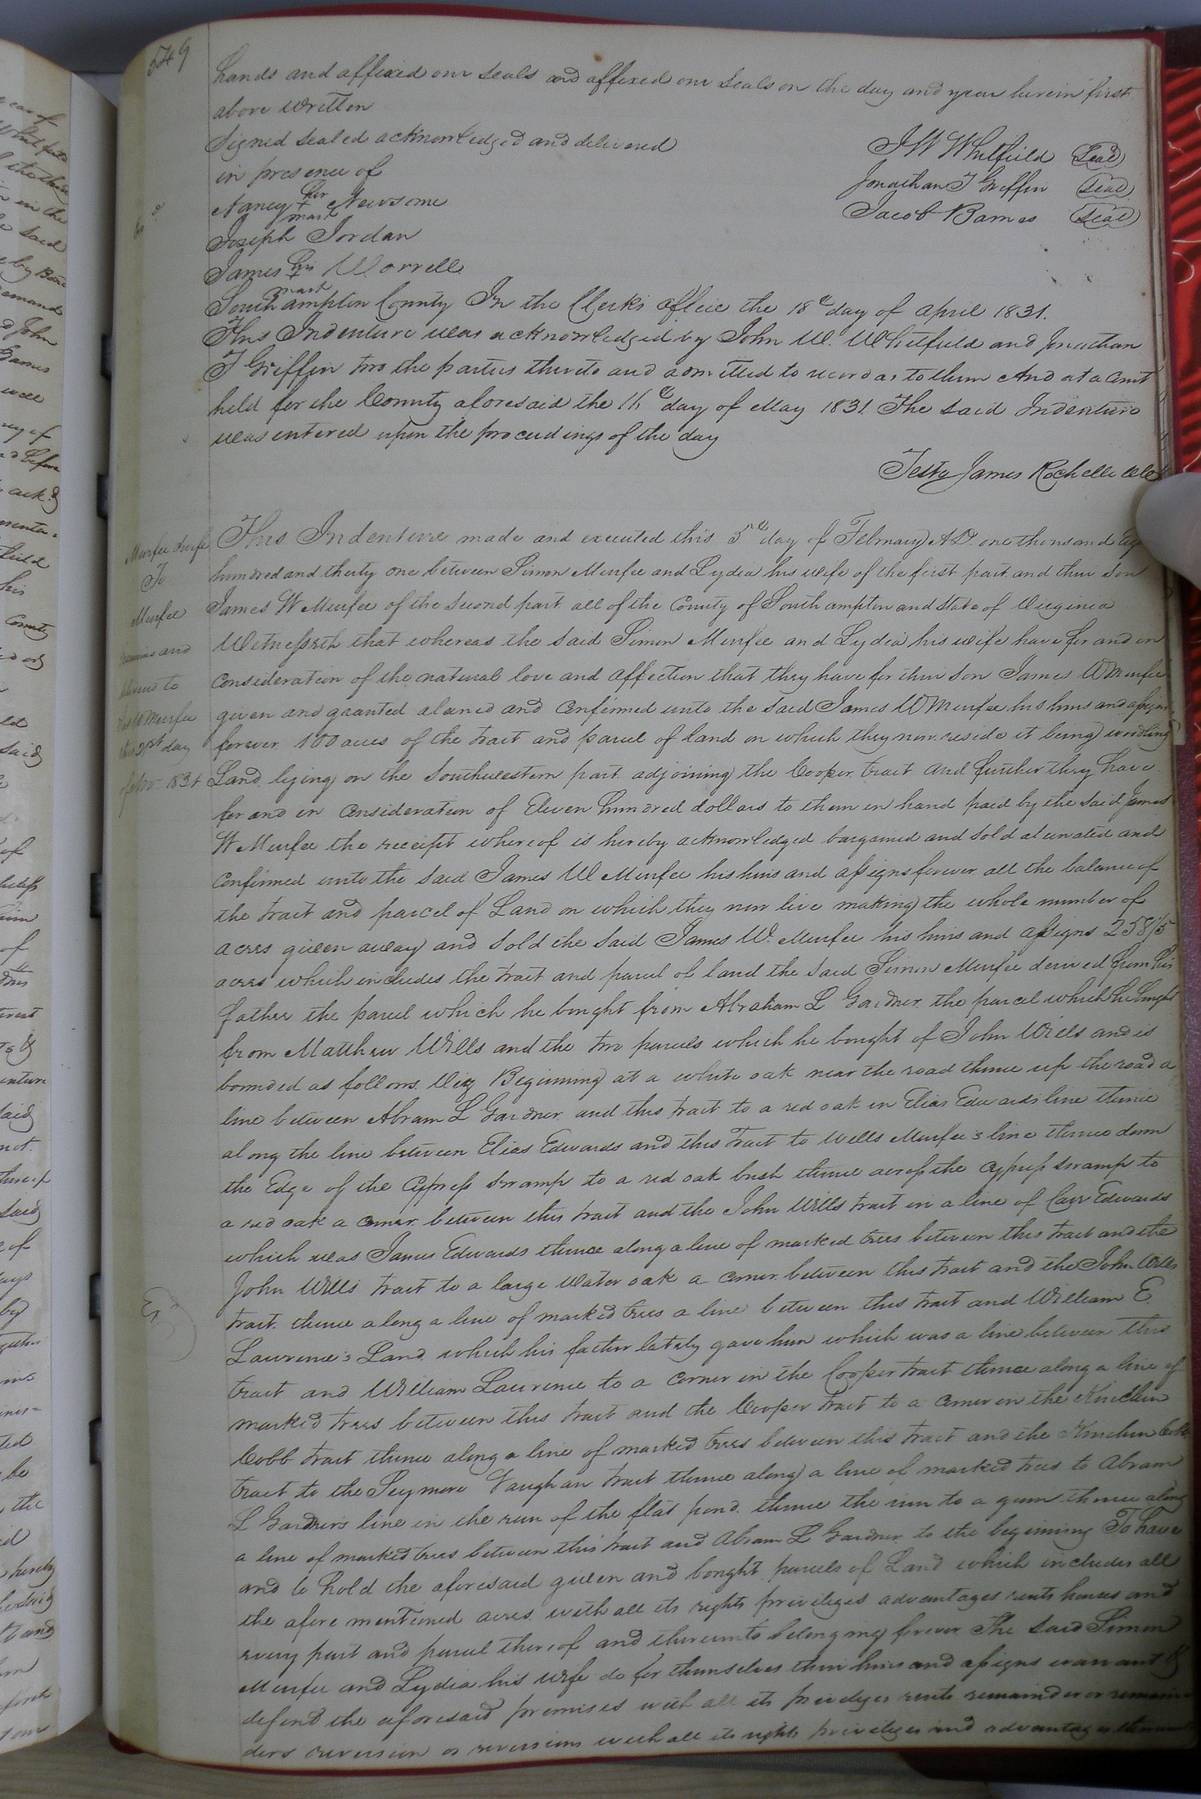 549
hands and affixed our seals and affixed our seals on the day and year herein first
above written
Signed sealed acknowledged and delivered
in presence of
J W Whitfield (Seal)
Jonathan T Griffin (Seal)
Jacob Barnes (Seal)
Nancy her + mark Newsome
Joseph Jordan
James his + mark Worrell
Southampton County In the Clerks office the 18th day of April 1831.
This Indenture was acknowledged by John W. Whitfield and Jonathan
T Griffin two the parties thereto and admitted to record as to them And at a Court
held for the County aforesaid the 16th day of May 1831 The said Indenture
was entered upon the proceedings of the day
Teste James Rochelle
Murfee
To
Murfee
and
to
W Murfee
21st day
Nov. 1831
This Indenture made and executed this 5th day of February A.D. one thousand
hundred and thirty one between Simon Murfee and Lydia his wife of the first part and their son
James W Murfee of the second part all of the County of Southampton and State of Virginia
Witnesseth that whereas the said Simon Murfee and Lydia his wife have for and in
consideration of the natural love and affection that they have for their son James W Murfee
given and granted aliened and confirmed unto the said James W Murfee his heirs and assigns
forever 100 acres of the tract and parcel of land on which they now reside it being woodland
Land lying on the Southwestern part adjoining the Cooper tract and further they have
for and in consideration of Eleven hundred dollars to them in hand paid by the said James
W Murfee the receipt whereof is hereby acknowledged bargained and sold alienated and
confirmed unto the said James W Murfee his heirs and assigns forever all the balance of
the tract and parcel of Land on which they now live making the whole number of
acres given away and sold the said James W. Murfee his heirs and assigns
acres which includes the tract and parcel of land the said Simon Murfee derived from his
father the parcel which he bought from Abraham L Gardner the parcel which he bought
from Matthew Wills and the two parcels which he bought of John Wills and is
bounded as follows Viz Beginning at a white oak near the road thence up the road a
line between Abram L Gardner and this tract to a red oak in Elias Edwards line thence
along the line between Elias Edwards and this Tract to Wells Murfee's line thence down
the Edge of the Cypress Swamp to a red oak bush thence across the Cypress Swamp to
a red oak a corner between this tract and the John Wills tract in a line of Carr Edwards
which was James Edwards thence along a line of marked trees between this tract and the
John Wills tract to a large Water oak a corner between this tract and the John Wills
tract thence along a line of marked trees a line between this tract and William E
Lawrence's Land which his father lately gave him which was a line between this
tract and William Lawrence to a corner in the Cooper tract thence along a line of
marked trees between this tract and the Cooper tract to a corner in the Kinchen
Cobb tract thence along a line of marked trees between this tract and the Kinchen Cobb
tract to the Seymore Vaughan tract thence along a line of marked trees to Abram
L Gardner's line in the run of the flat pond thence the run to a gum thence along
a line of marked trees between this tract and Abram L Gardner to the beginning To have
and to hold the aforesaid given and bought parcels of Land which includes all
the afore mentioned acres with all its rights priviliges advantages rents houses and
every part and parcel thereof and thereunto belonging forever The said Simon
Murfee and Lydia his wife do for themselves their heirs and assigns warrant &
defend the aforesaid premises with all its priviliges rents remainder or remain
ders reversion or reversions with all its rights priviliges and advantages